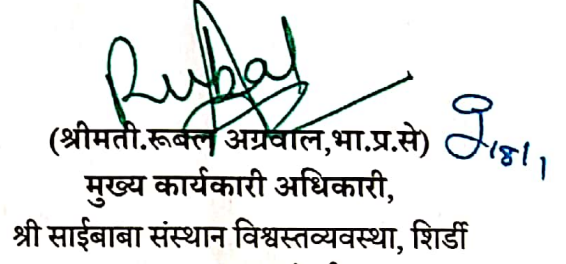 Rubal
(श्रीमती.रूबल अग्रवाल,भा.प्र.से)
मुख्य कार्यकारी अधिकारी,
श्री साईबाबा संस्थान विश्वस्तव्यवस्था, शिर्डी